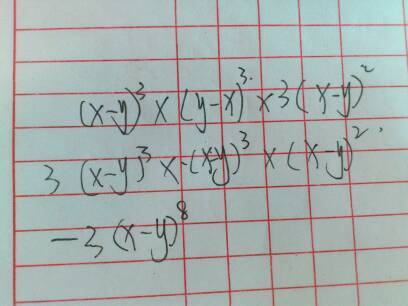 (x-y)³ x (y-x)³. x 3 (x-y)²
3 (x-y)³ x -(x-y)³ x (x-y)².
-3 (x-y)⁸